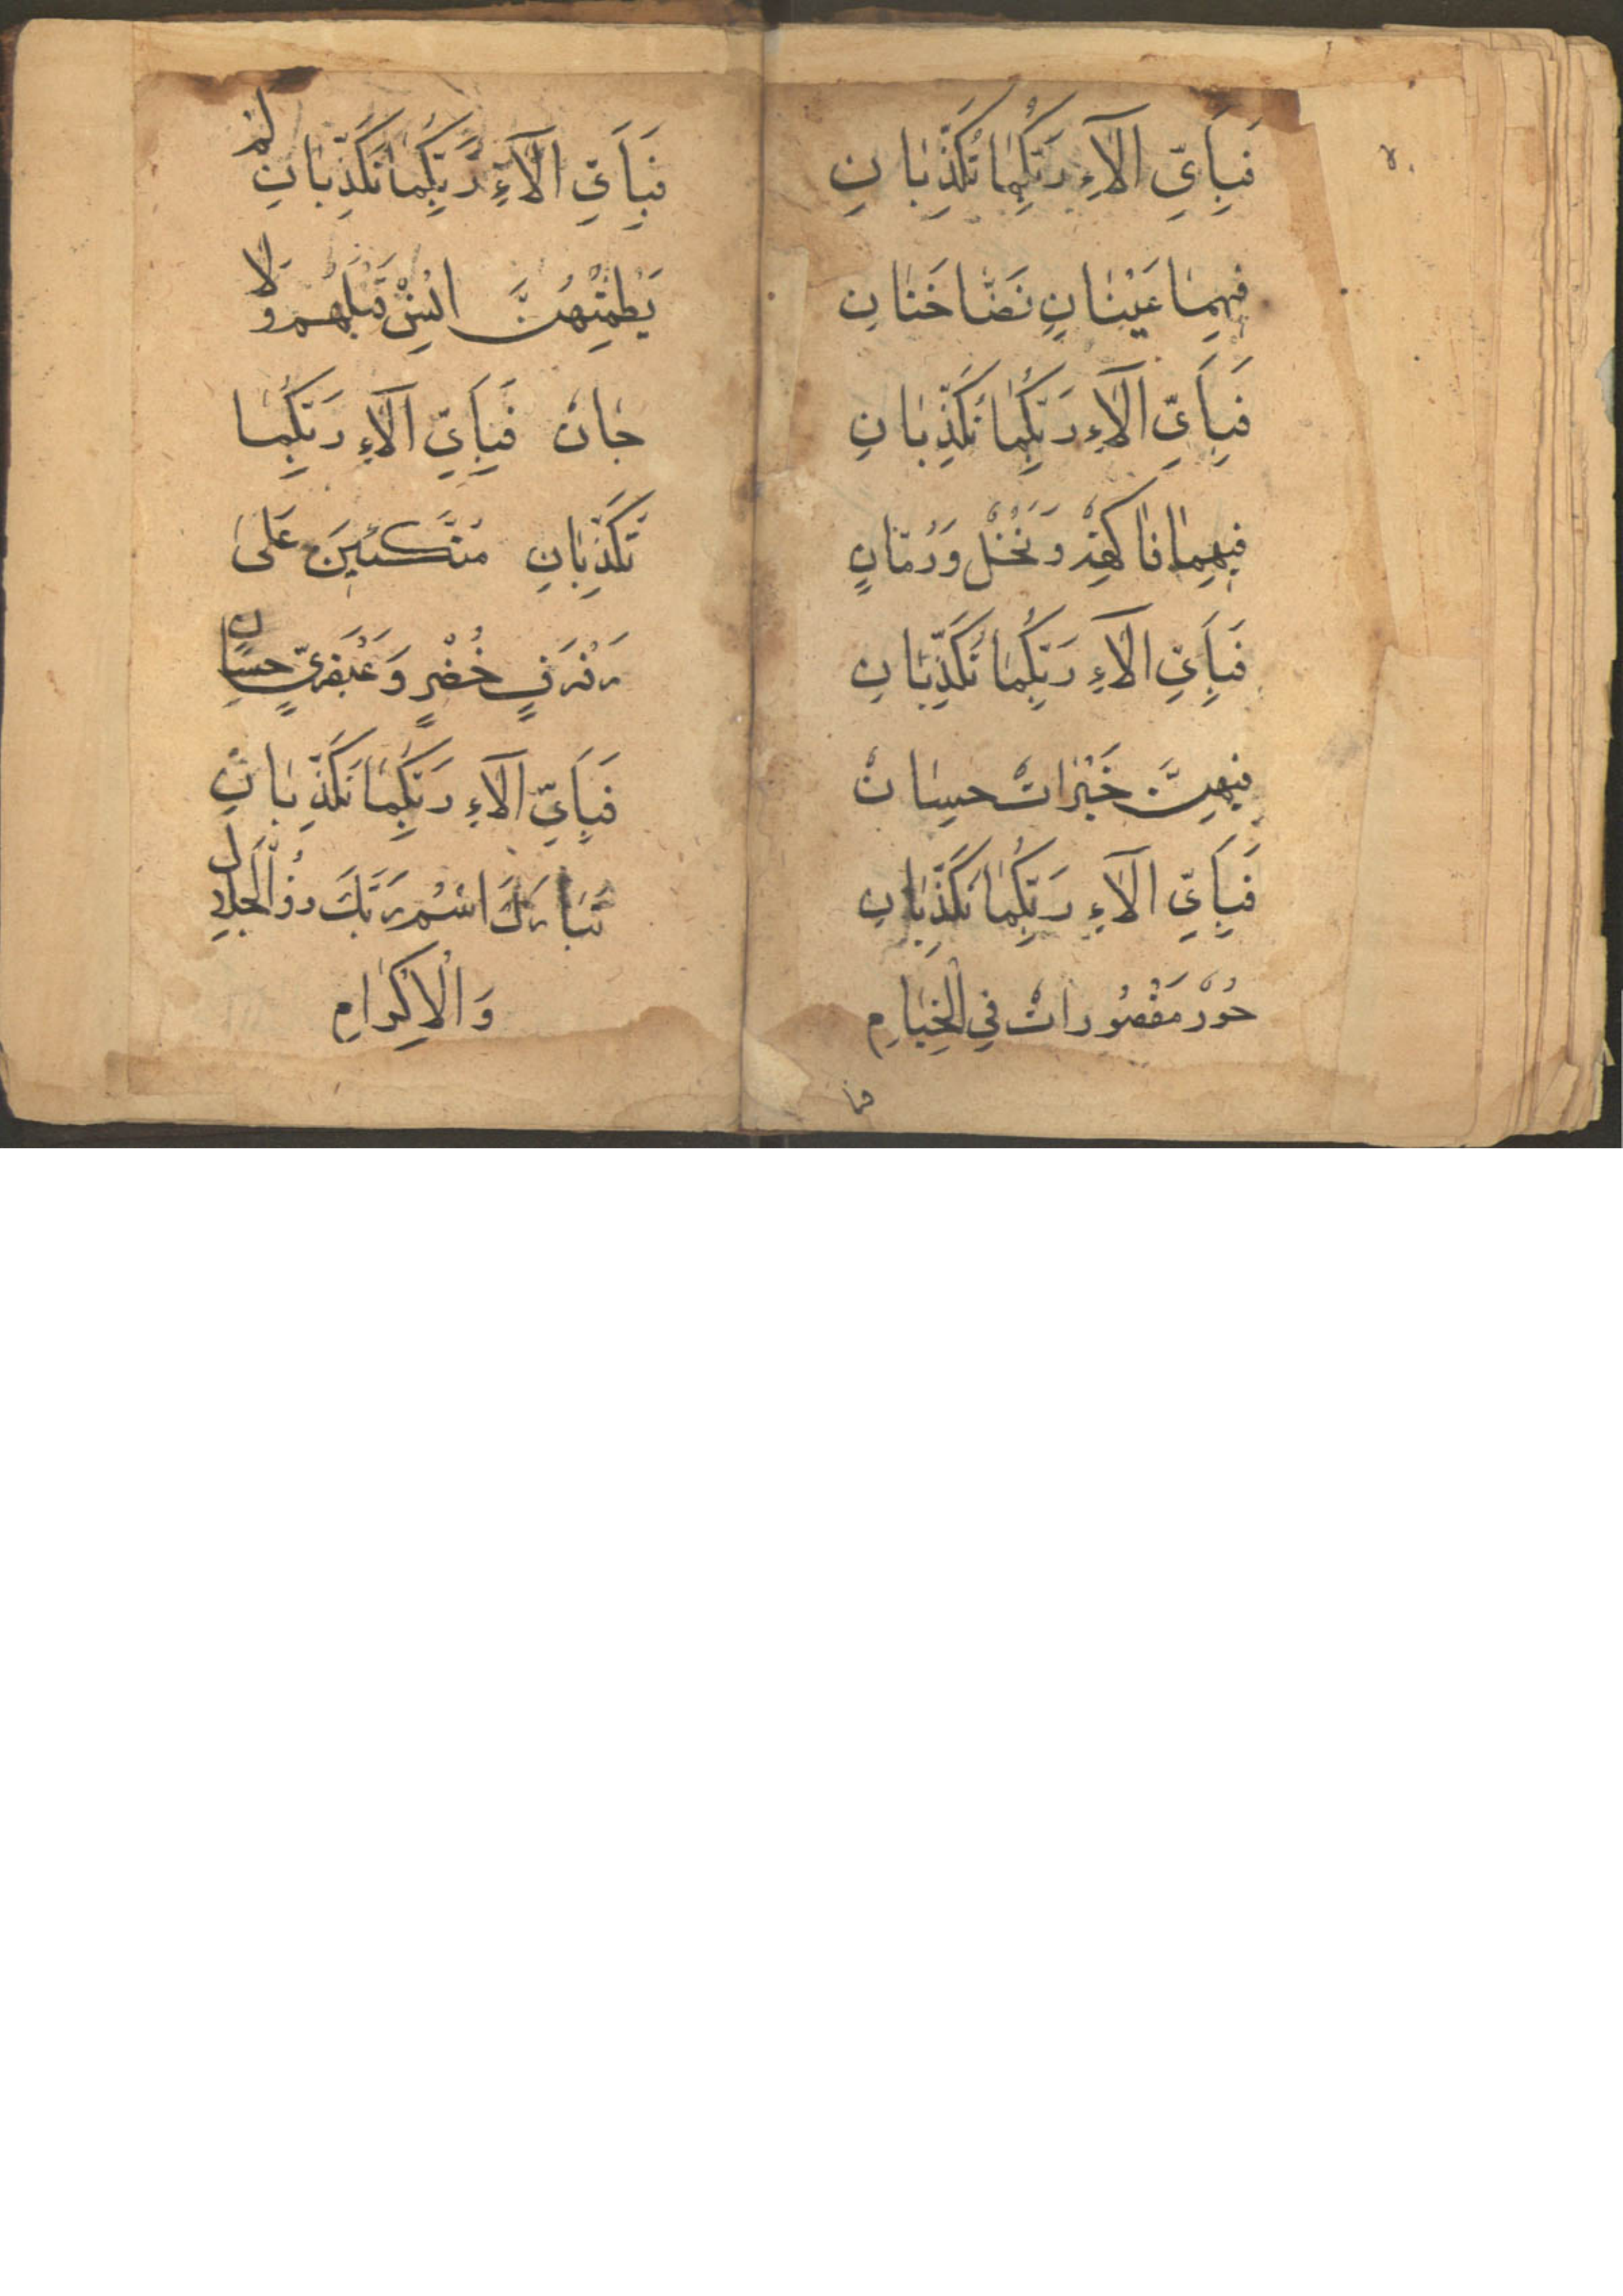 فَبِأَيِّ آلَاءِ رَبِّكُمَا تُكَذِّبَانِ
فِيهِمَا عَيْنَانِ نَضَّاخَتَانِ
فَبِأَيِّ آلَاءِ رَبِّكُمَا تُكَذِّبَانِ
فِيهِمَا فَاكِهَةٌ وَنَخْلٌ وَرُمَّانٍ
فَبِأَيِّ آلَاءِ رَبِّكُمَا تُكَذِّبَانِ
فِيهِنَّ خَيْرَاتٌ حِسَانٌ
فَبِأَيِّ آلَاءِ رَبِّكُمَا تُكَذِّبَانِ
حُورٌ مَقْصُورَاتٌ فِي الْخِيَامِ
فَبِأَيِّ آلَاءِ رَبِّكُمَا تُكَذِّبَانِ لَمْ
يَطْمِثْهُنَّ اِنْسٌ قَبْلَهُمْ وَلَا
جَانٌ فَبِأَيِّ آلَاءِ رَبِّكُمَا
تُكَذِّبَانِ مُتَّكِئِينَ عَلَى
رَفْرَفٍ خُضْرٍ وَعَبْقَرِيٍّ حِسَانٍ
فَبِأَيِّ آلَاءِ رَبِّكُمَا تُكَذِّبَانِ
تَبَارَكَ اسْمُ رَبِّكَ ذُو الْجَلَالِ
وَالْاِكْرَامِ